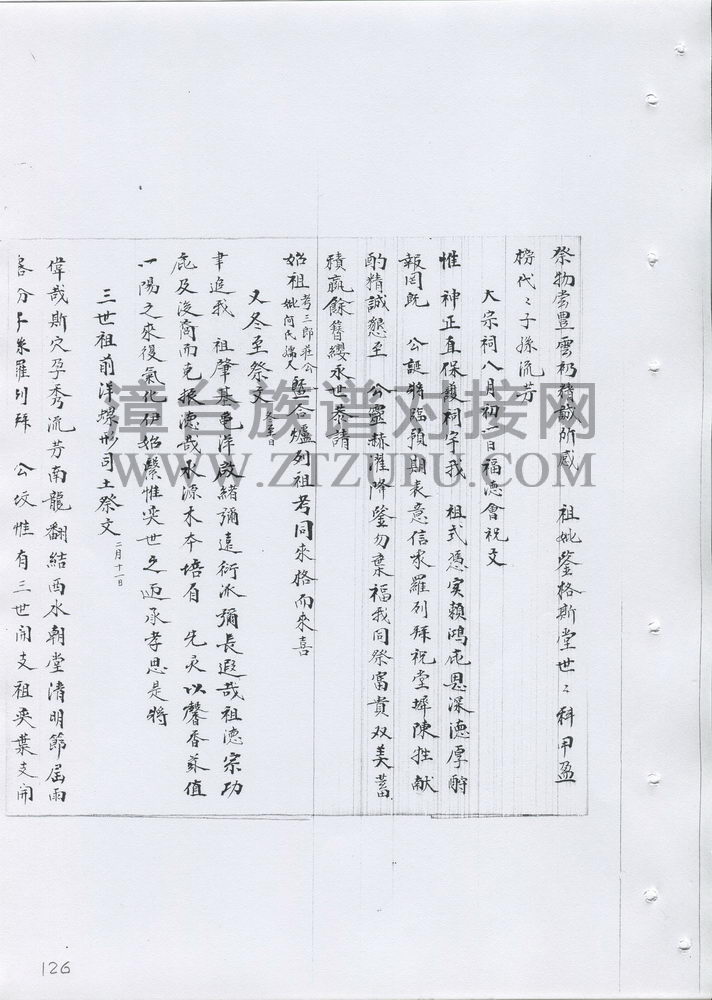 祭物雲豐雲礽務敬所感　祖妣鑒格斯堂世〻科甲盈
榜代〻子孫流芳
大宗祠八月初一日福德會祝文
惟　神正直保護祠宇我　祖式憑实賴鴻庇恩深德厚酧
報罔既　公誕將臨預期表意信求羅列拜祝堂墀陳牲献
酌精誠懇至　公靈赫濯降鑒勿棄福我同祭富貴双美蓄
積贏餘簪纓永世恭請
始祖考三郎莊公妣何氏孺人暨合爐列祖考同來格而來喜
又冬至祭文 冬至日
聿追我　祖肇基龟洋啟緒彌遠衍派彌長遐哉祖德宗功
庇及後裔而克振德哉水源木本培有　先灵以馨香兼值
一陽之來復氣化伊始繄惟奕世之迊承孝思是將
三世祖前洋螺形司土祭文 二月十一日
偉哉斯穴孕秀流芳南龍翻結西水朝堂清明節屆雨
客分子朱羅列拜　公坟惟有三世開支祖奕葉支開
126
漳台族谱对接网
WWW.ZTZUPU.COM